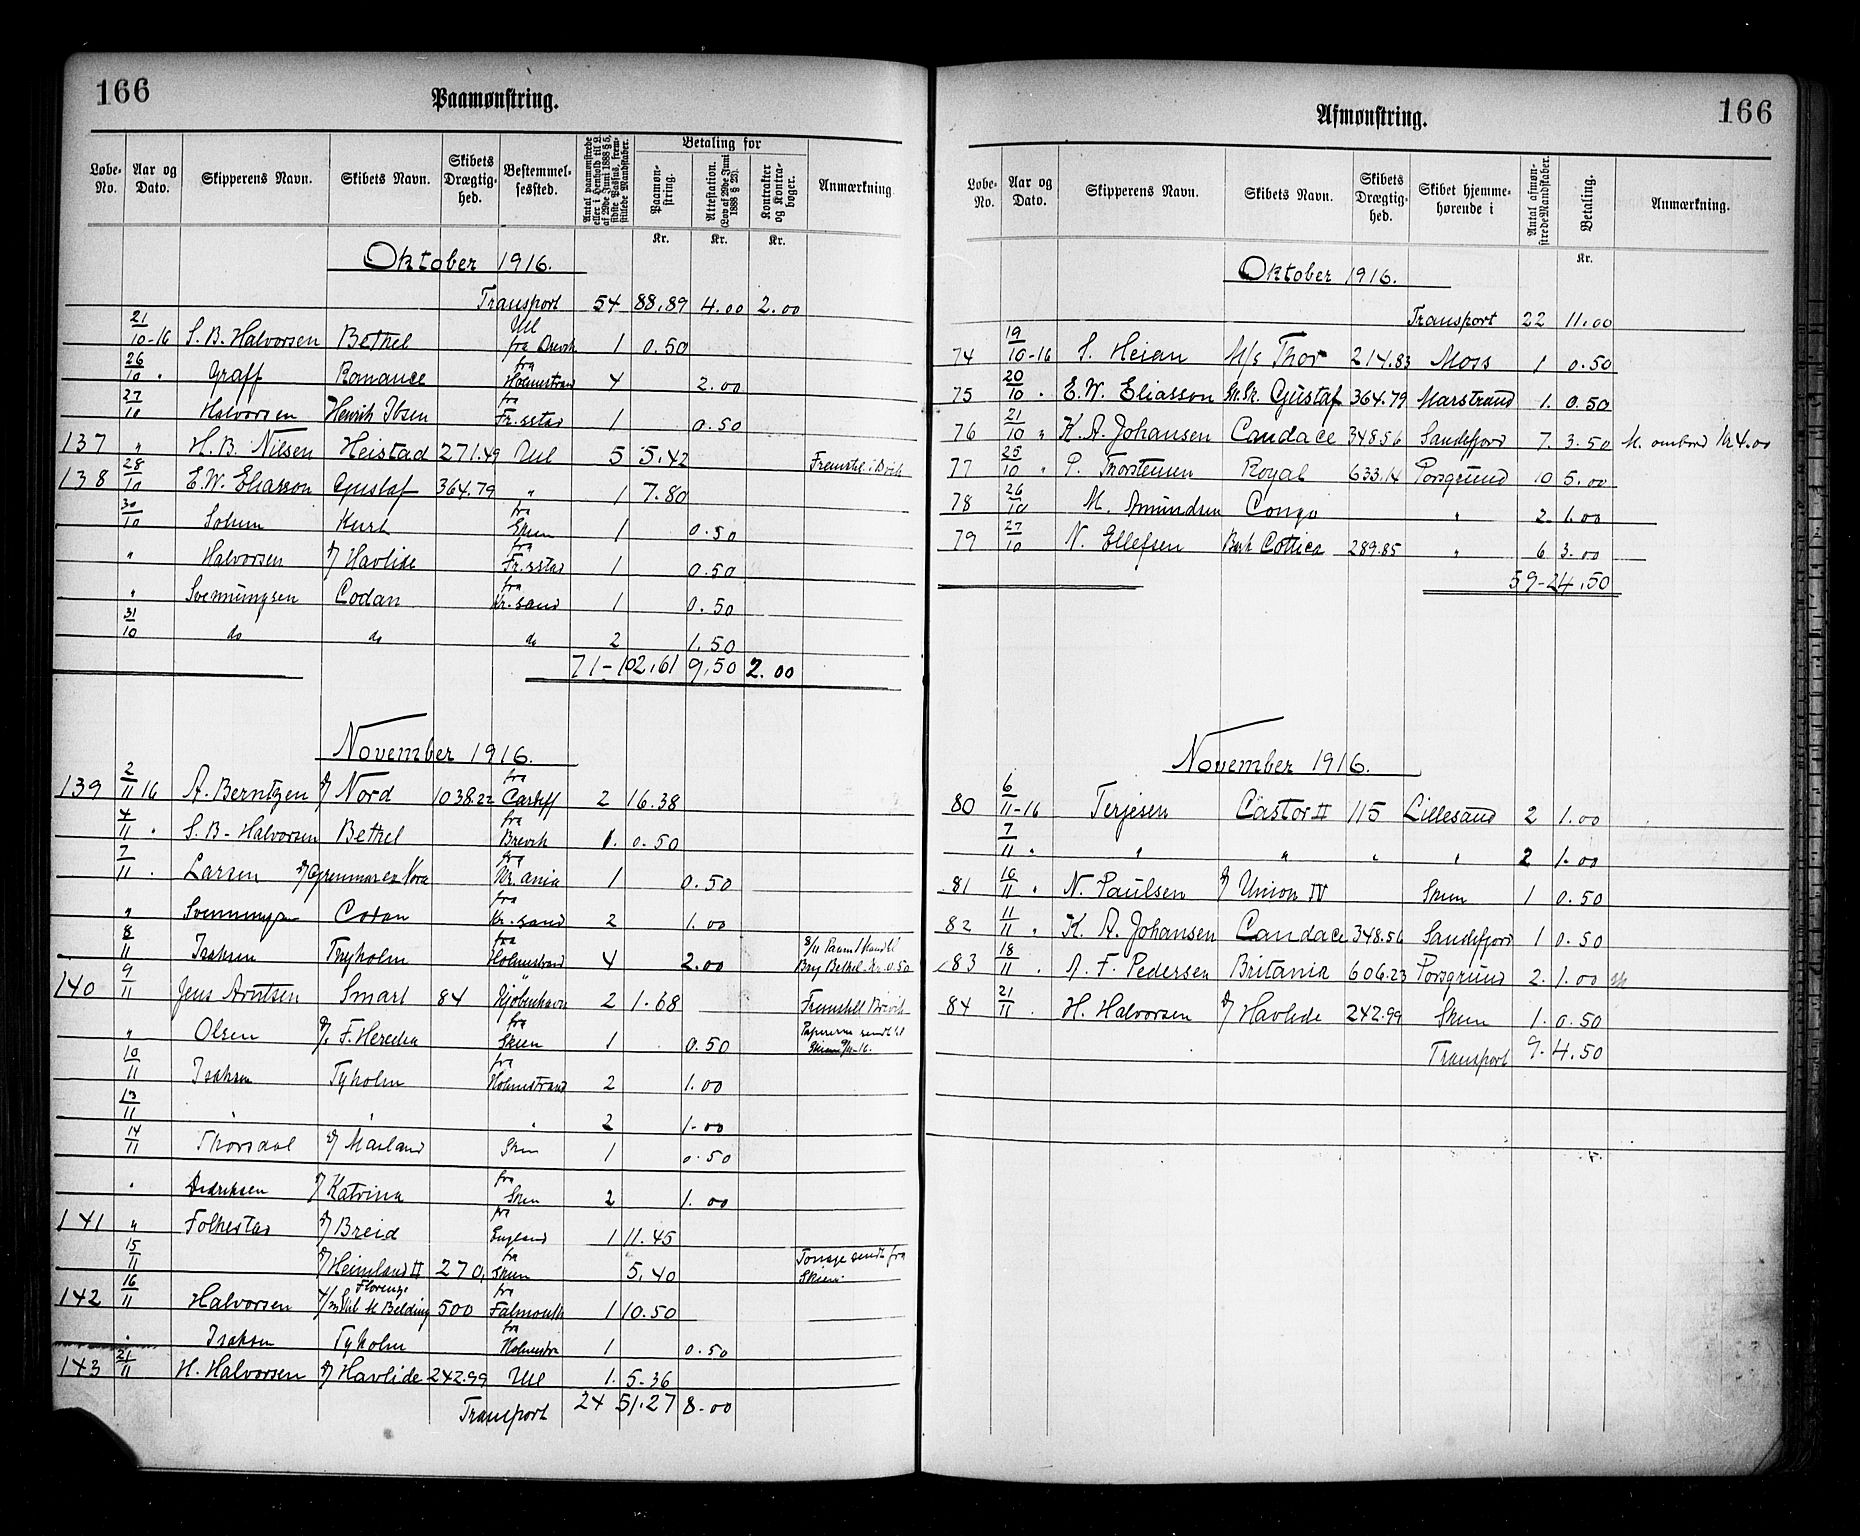 166
Paamønstring.
Løbe-No. Aar og Dato. Skipperens Navn. Skibets Navn. Skibets Drægtighed. Bestemmelsessted. Antal paamønstrede eller i Henhold til L. af 29de Juni 1888 § 5, sidste Passus, fremstillede Mandskaber. Betaling for Paamønstring. Attestation. (Lov af 29de Juni 1888 § 23). Kontrakter og Kontrabøger. Anmærkning
Kr. Kr. Kr.
Oktober 1916.
Transport 54 88.89 4.00 2.00
21/10-16 S. B. Halvorsen Bethel Ul fra Brevik 1 0.50
26/10 " Graff Romance fra Holmestrand 4 2.00
27/10 Halvorsen Henrik Ibsen fra Fr.stad 1 0.50
137 " H. B. Nilsen Heistad 271.49 Ul 5 5.42 Fremstil. i Brvik
138 28/10 E. W. Eliasson Gustaf 364.79 " 1 7.80
30/10 Solum Kurt fra Skien 1 0.50
" Halvorsen D/ Havlide fra Fr.stad 1 0.50
" Svennungsen Codan fra Kr.sand 1 0.50
31/10 do do do 2 1.50
71 - 102.61 9.50 2.00
November 1916.
139 2/11 16 A. Berntzen D/ Nord 1038.22 fra Cardiff 2 16.38
4/11 " S. B. Halvorsen Bethel fra Brevik 1. 0.50
7/11 " Larsen D/ Grenmar ex Nora fra Kr.ania 1 0.50
" Svennungsen Codan fra Kr.sand 2 1.00
8/11 Isaksen Tryholm fra Holmestrand 4 2.00 8/11 Paam 1 Mand til Brig Bethel Kr. 0.50
140 9/11 Jens Arntsen Smart 84 Kjøbenhavn 2 1.68 Fremstillt Brevik
" Olsen D/ F. Heredia fra Skien 1 0.50 Papirerne sendt til Skien 9/11-16.
10/11 Isaksen Tyholm fra Holmestrand 2 1.00
13/11 " " " 2 1.00
14/11 Thorsdal D/ Marland Skien 1 0.50
" Dedriksen D/ Katrina fra Skien 2 1.00
141 " Folkestad D/ Breid fra England 1 11.45
15/11 D/ Heimland II 270, fra Skien 5.40 Tonage sendt fra Skien.
142 16/11 Halvorsen Florenze M. Belding 500 fra Falmouth 1 10.50
" Isaksen Tyholm fra Holmestra 1 0.50
143 21/11 H. Halvorsen D/ Havlide 242.99 Ul 1. 5.36
Transport 24 51.27 8.00
166
Afmønstring.
Løbe-No. Aar og Dato. Skipperens Navn. Skibets Navn. Skibets Drægtighed. Skibet hjemmehørende i Antal afmønstrede Mandskaber. Betaling. Anmærkning.
Kr.
Oktober 1916.
Transport 22 11.00
74 19/10-16 S. Heian M/s Thor 214.83 Moss 1 0.50
75 20/10 " E. W. Eliasson M.Sk. Gustaf 364.79 Marstrand 1. 0.50
76 21/10 " K. A. Johansen Candace 348.56 Sandefjord 7. 3.50 M. ombord Kr 4.00
77 25/10 " P. Thorstensen Royal 633.14 Porsgrund 10 5.00
78 26/10 M. Amundsen Congo " 2. 1.00
79 27/10 N. Ellefsen Bark Cottica 289.85 " 6 3.00
59 - 24.50
November 1916.
80 6/11-16 Terjesen Castor II 115 Lillesand 2 1.00
7/11 " " " " " 2 1.00
81 10/11 " N. Paulsen D/ Union IV Skien 1 0.50
82 11/11 " K. A. Johansen Candace 348.56 Sandefjord 1 0.50
83 18/11 " A. F. Pedersen Britania 606.23 Porsgrund 2. 1.00
84 21/11 " H. Halvorsen D/ Havlide 242.99 Skien 1. 0.50
Transport 9. 4.50